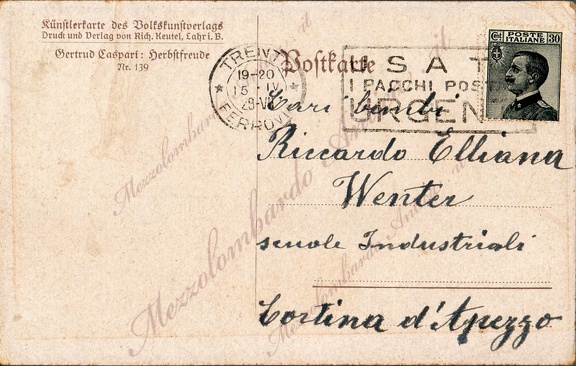 Künstlerkarte des Volkskunstverlags
Druck und Verlag von Rich. Keutel, Lahr i. B.
Gertrud Caspari: Herbstfreude
Nr. 139
Postkarte
TRENTO
19-20
15 IV
FERROVIA
USATE
I PACCHI POSTALI
URGENTI
Cmi 30
POSTE
ITALIANE
Cari bimbi
Riccardo Elliana
Wenter
scuole Industriali
Cortina d'Apezzo
Mezzolombardo
Mezzolombardo
Mezzolombardo
il